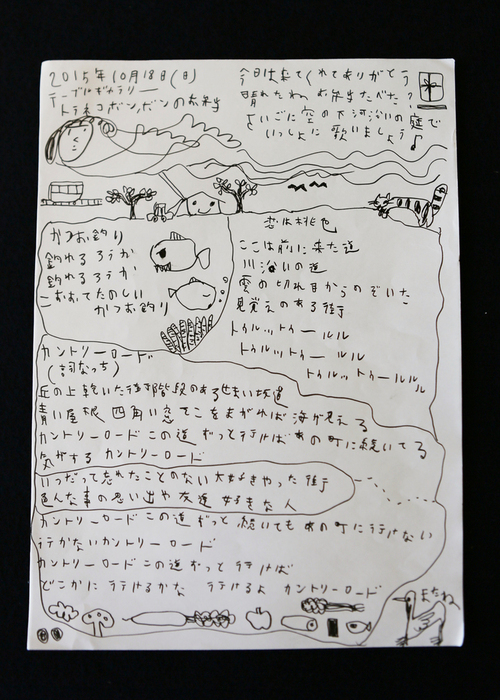 2015年10月18日(日)
テーブルギャラリー
トラネコボンボンのお弁当
今日は来てくれてありがとう
晴れたね お弁当たべた?
さいごに空の下河沿いの庭で
いっしょに歌いましょう♪
かつお釣り
釣れるろうか
釣れるろうか
こおおてたのしい
かつお釣り
雲は桃色
ここは前に来た道
川沿いの道
雲の切れ目からのぞいた
見覚えのある街
トゥルットゥー ルル
トゥルットゥー ルル
トゥルットゥールルルル
カントリーロード
(詞なっち)
丘の上乾いた強き階段のあるせまい坂道
青い屋根 四角い窓 そこをまがれば海が見える
カントリーロード この道 ずっと行けば あの町に続いてる
気がする カントリーロード
いつだって忘れたことのない大好きやった街
色んな事の思い出や友達 好きな人
カントリーロード この道 ずっと 続いても あの町に行けない
行かないカントリーロード
カントリーロード この道ずっと 行けば
どこかに 行けるかな 行けるよ カントリーロード
またねー